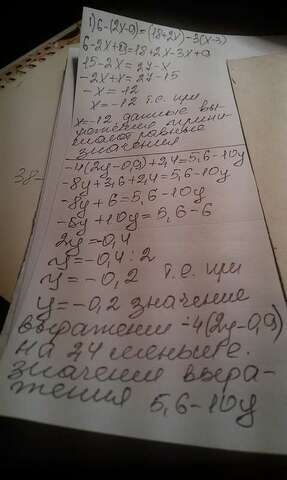 1) 6-(2x-9)=(18+2x)-3(x-3)
6-2x+9=18+2x-3x+9
15-2x=27-x
-2x+x=27-15
-x=12
x=-12 т.е. при
x=-12 данные вы-
ражения прини-
мают равные
значения
38-
-4(2y-0,9)+2,4=5,6-10y
-8y+3,6+2,4=5,6-10y
-8y+6=5,6-10y
-8y+10y=5,6-6
2y=-0,4
y=-0,4:2
y=-0,2 т.е. при
y=-0,2 значение
выражения -4(2y-0,9)
на 24 меньше
значения выра-
жения 5,6-10y